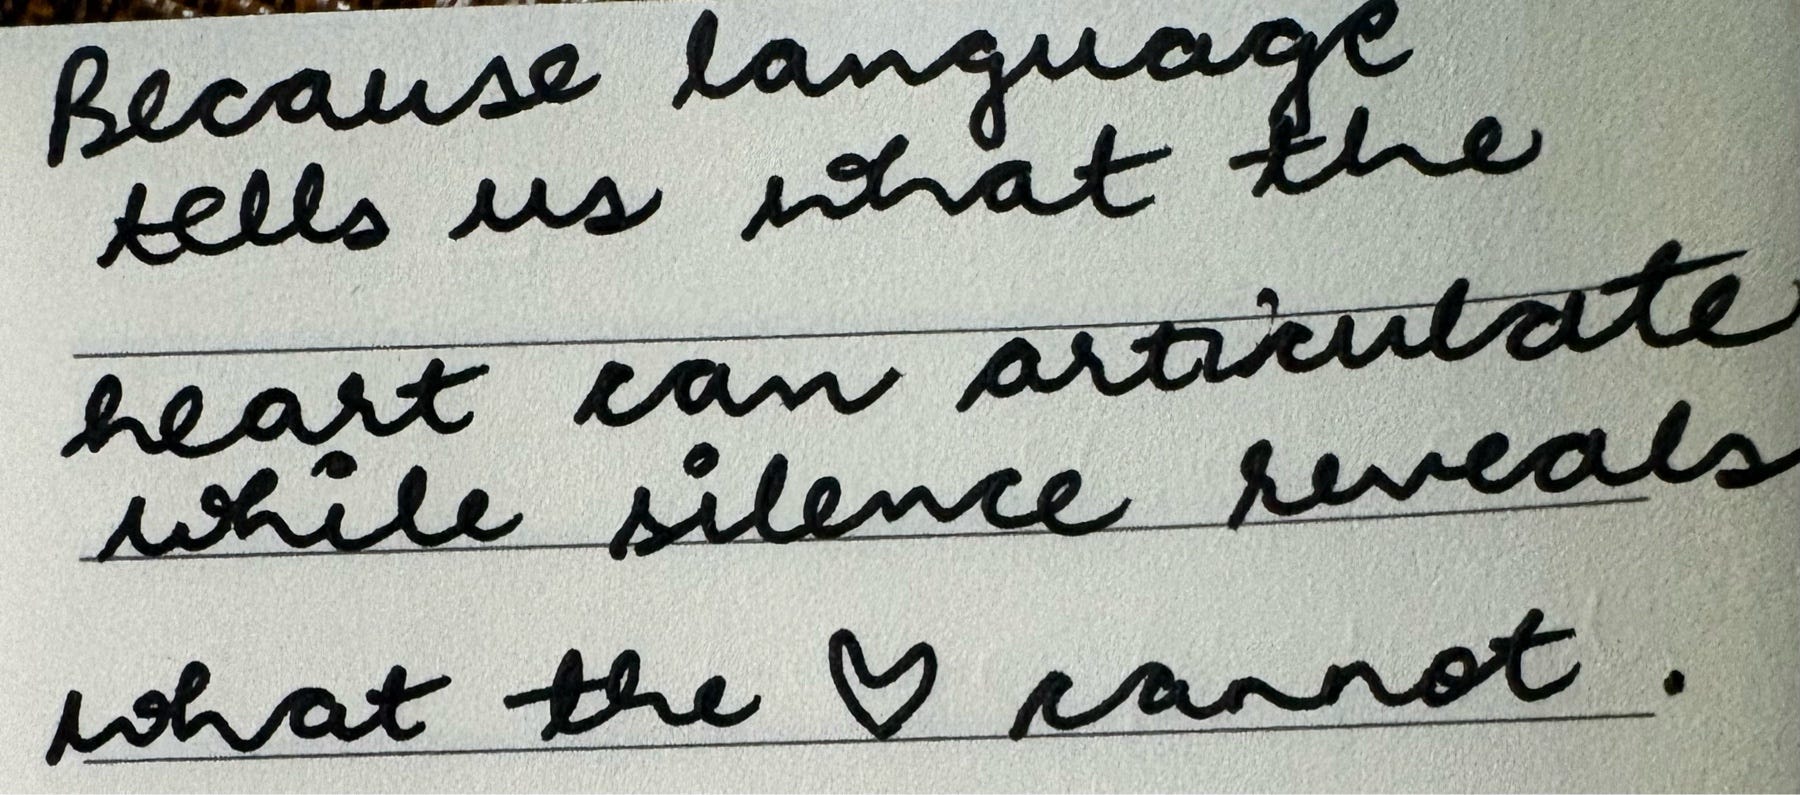 Because language
tells us what the
heart can articulate
while silence reveals
what the ♡ cannot.